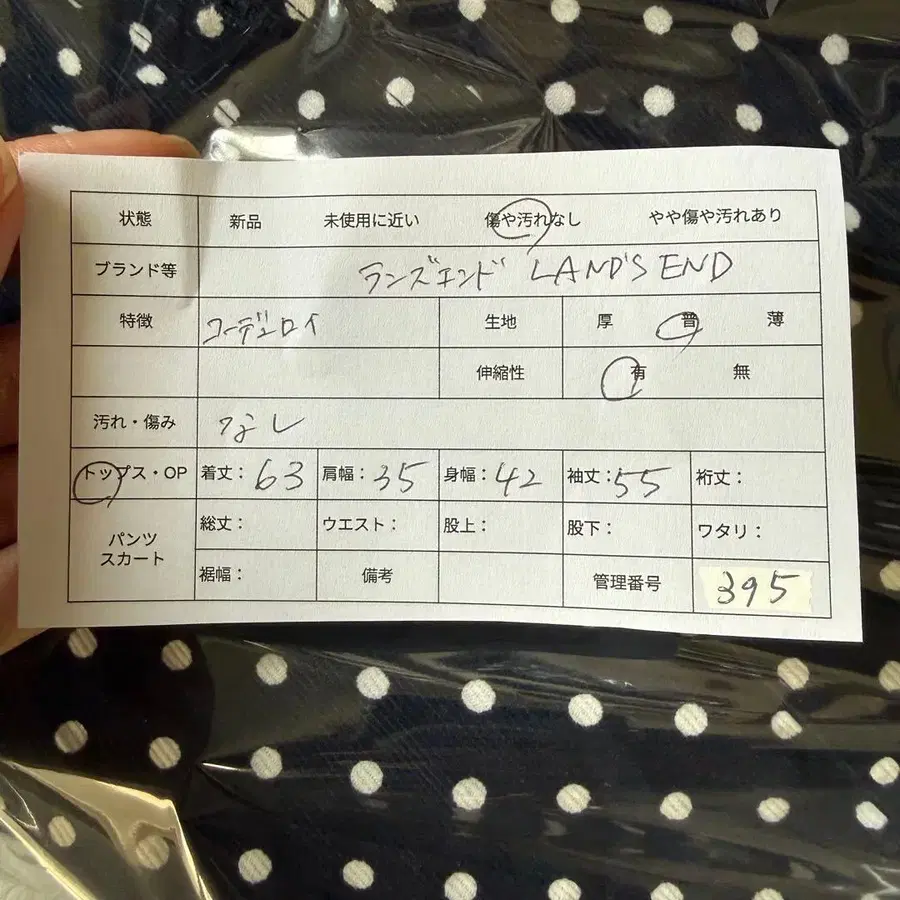 状態 新品 未使用に近い 傷や汚れなし やや傷や汚れあり
ブランド等 ランズエンド LAND'S END
特徴 コーデュロイ 生地 厚 普 薄
伸縮性 有 無
汚れ・傷み なし
トップス・OP 着丈：63 肩幅：35 身幅：42 袖丈：55 裄丈：
パンツ スカート
総丈： ウエスト： 股上： 股下： ワタリ：
裾幅： 備考 管理番号 395